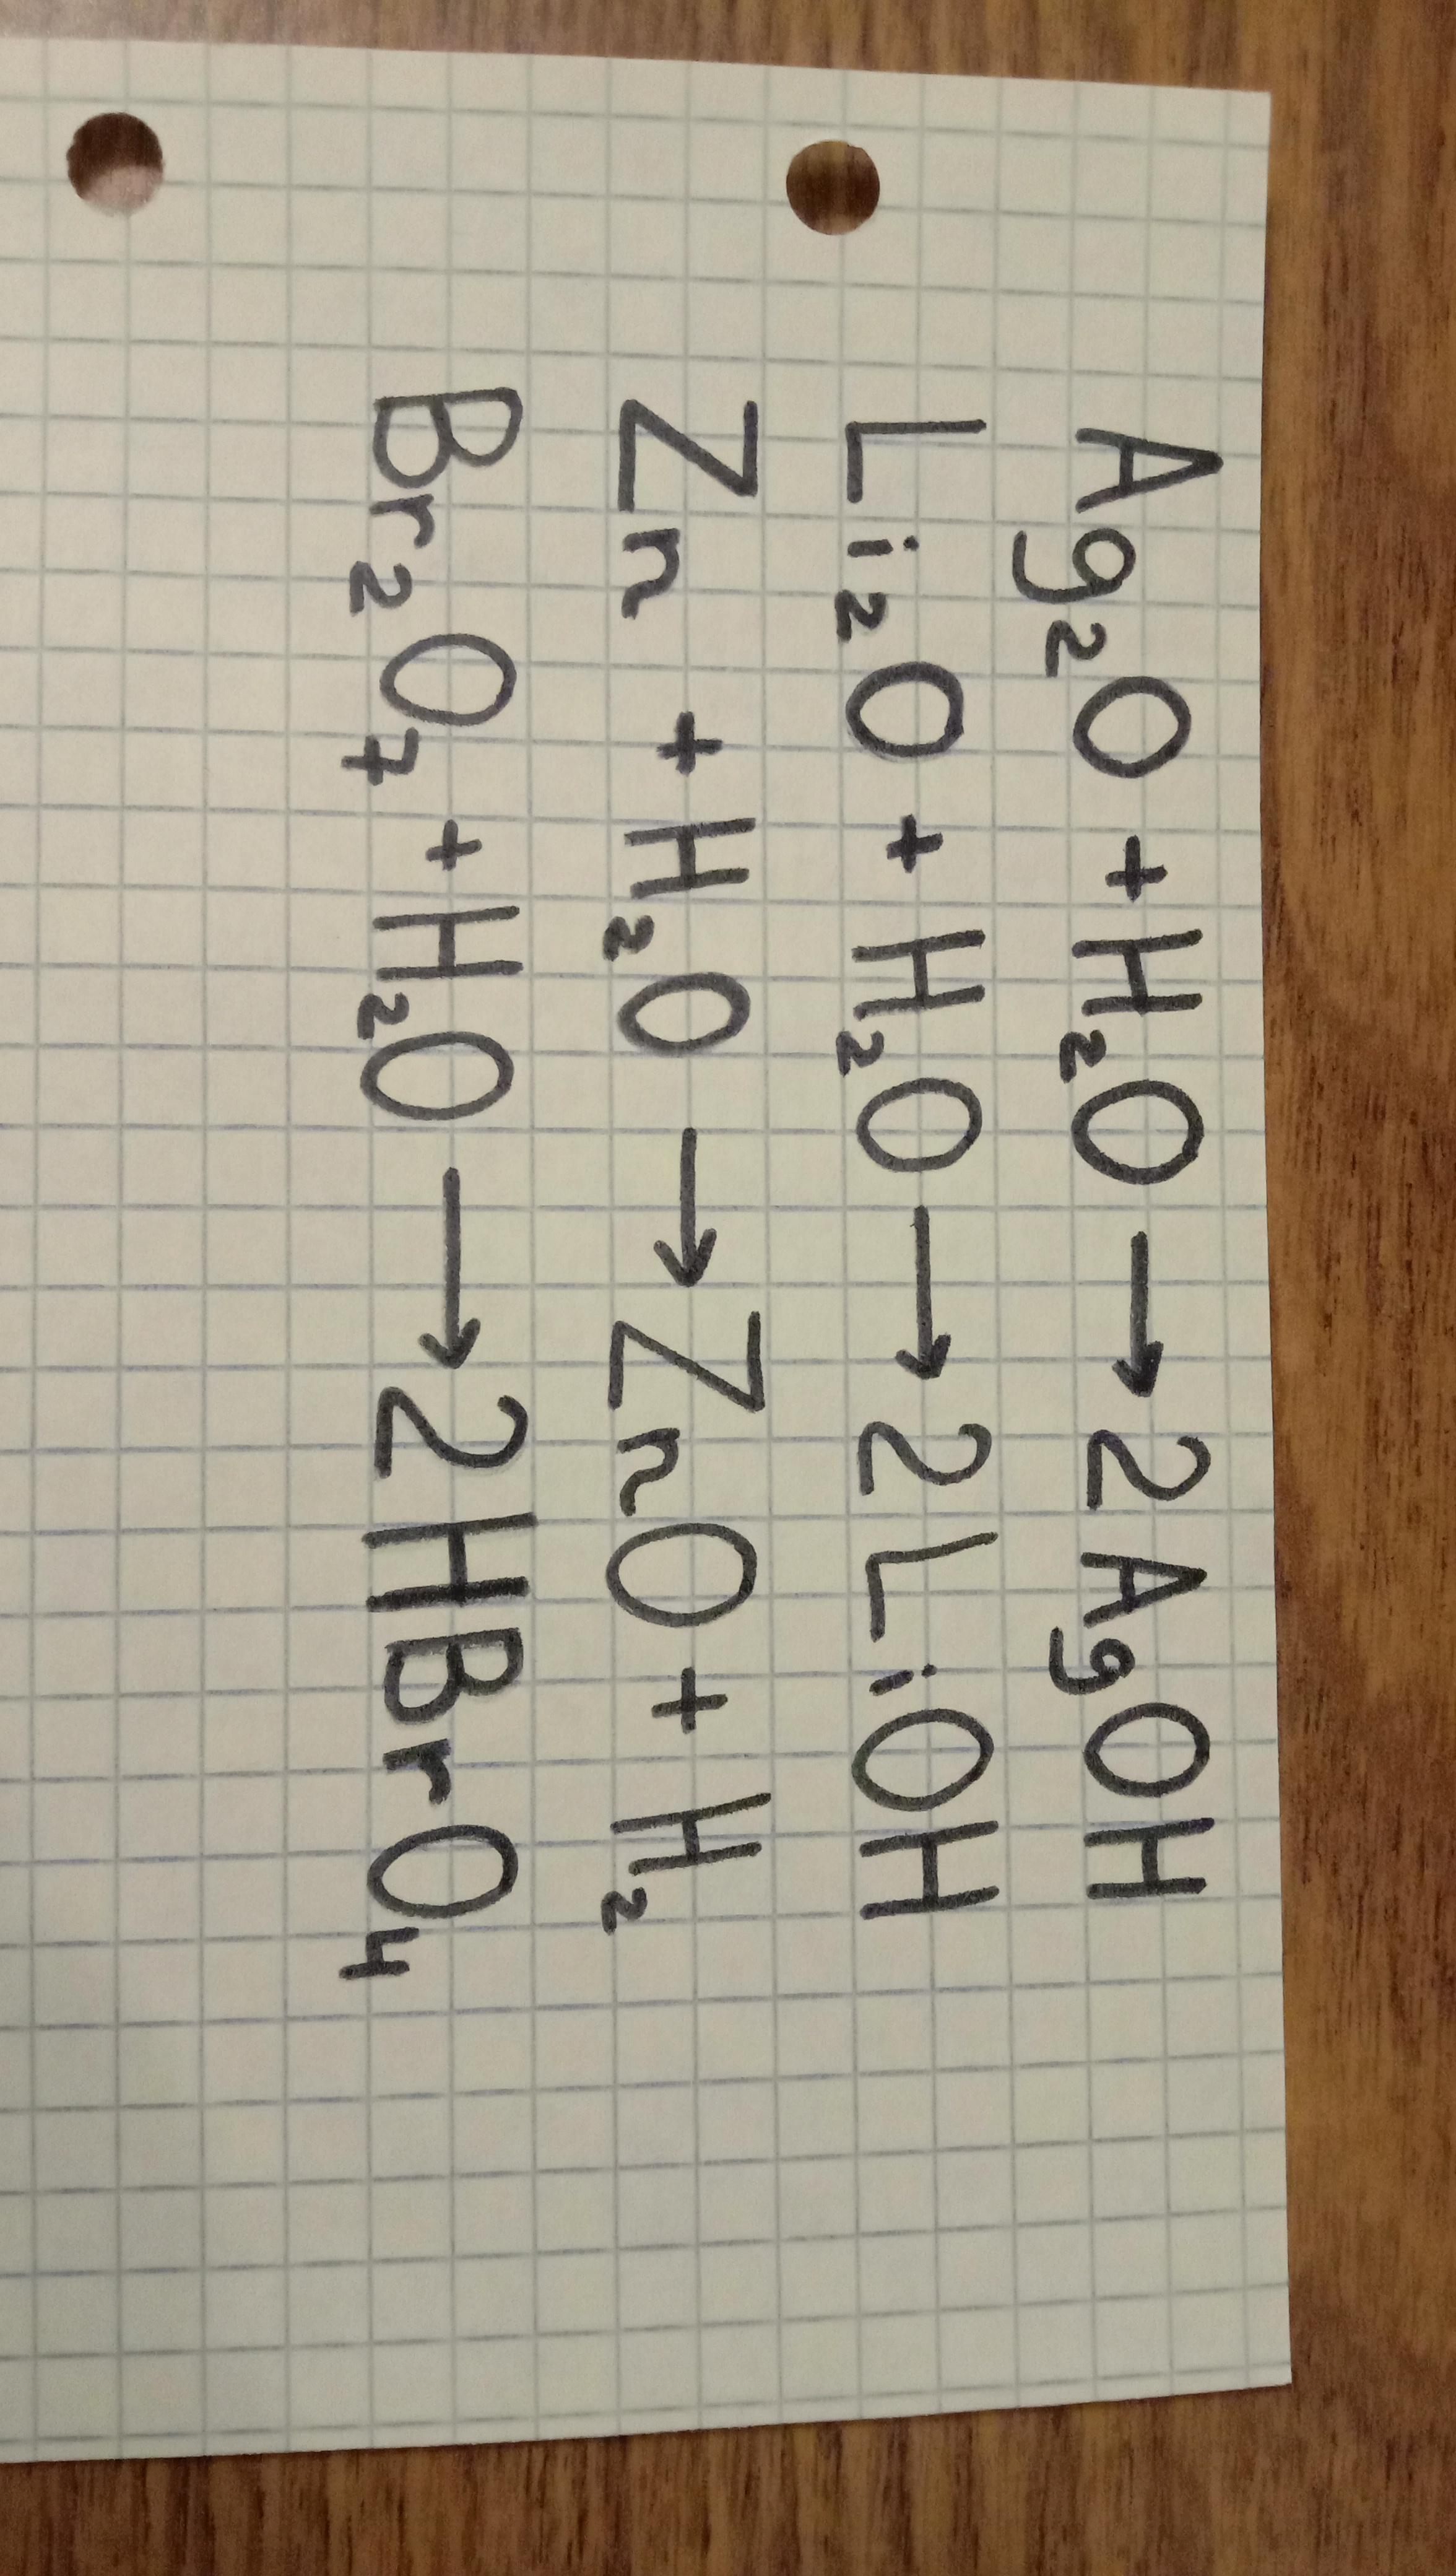 Ag₂O + H₂O → 2AgOH
Li₂O + H₂O → 2LiOH
Zn + H₂O → ZnO + H₂
Br₂O₇ + H₂O → 2HBrO₄